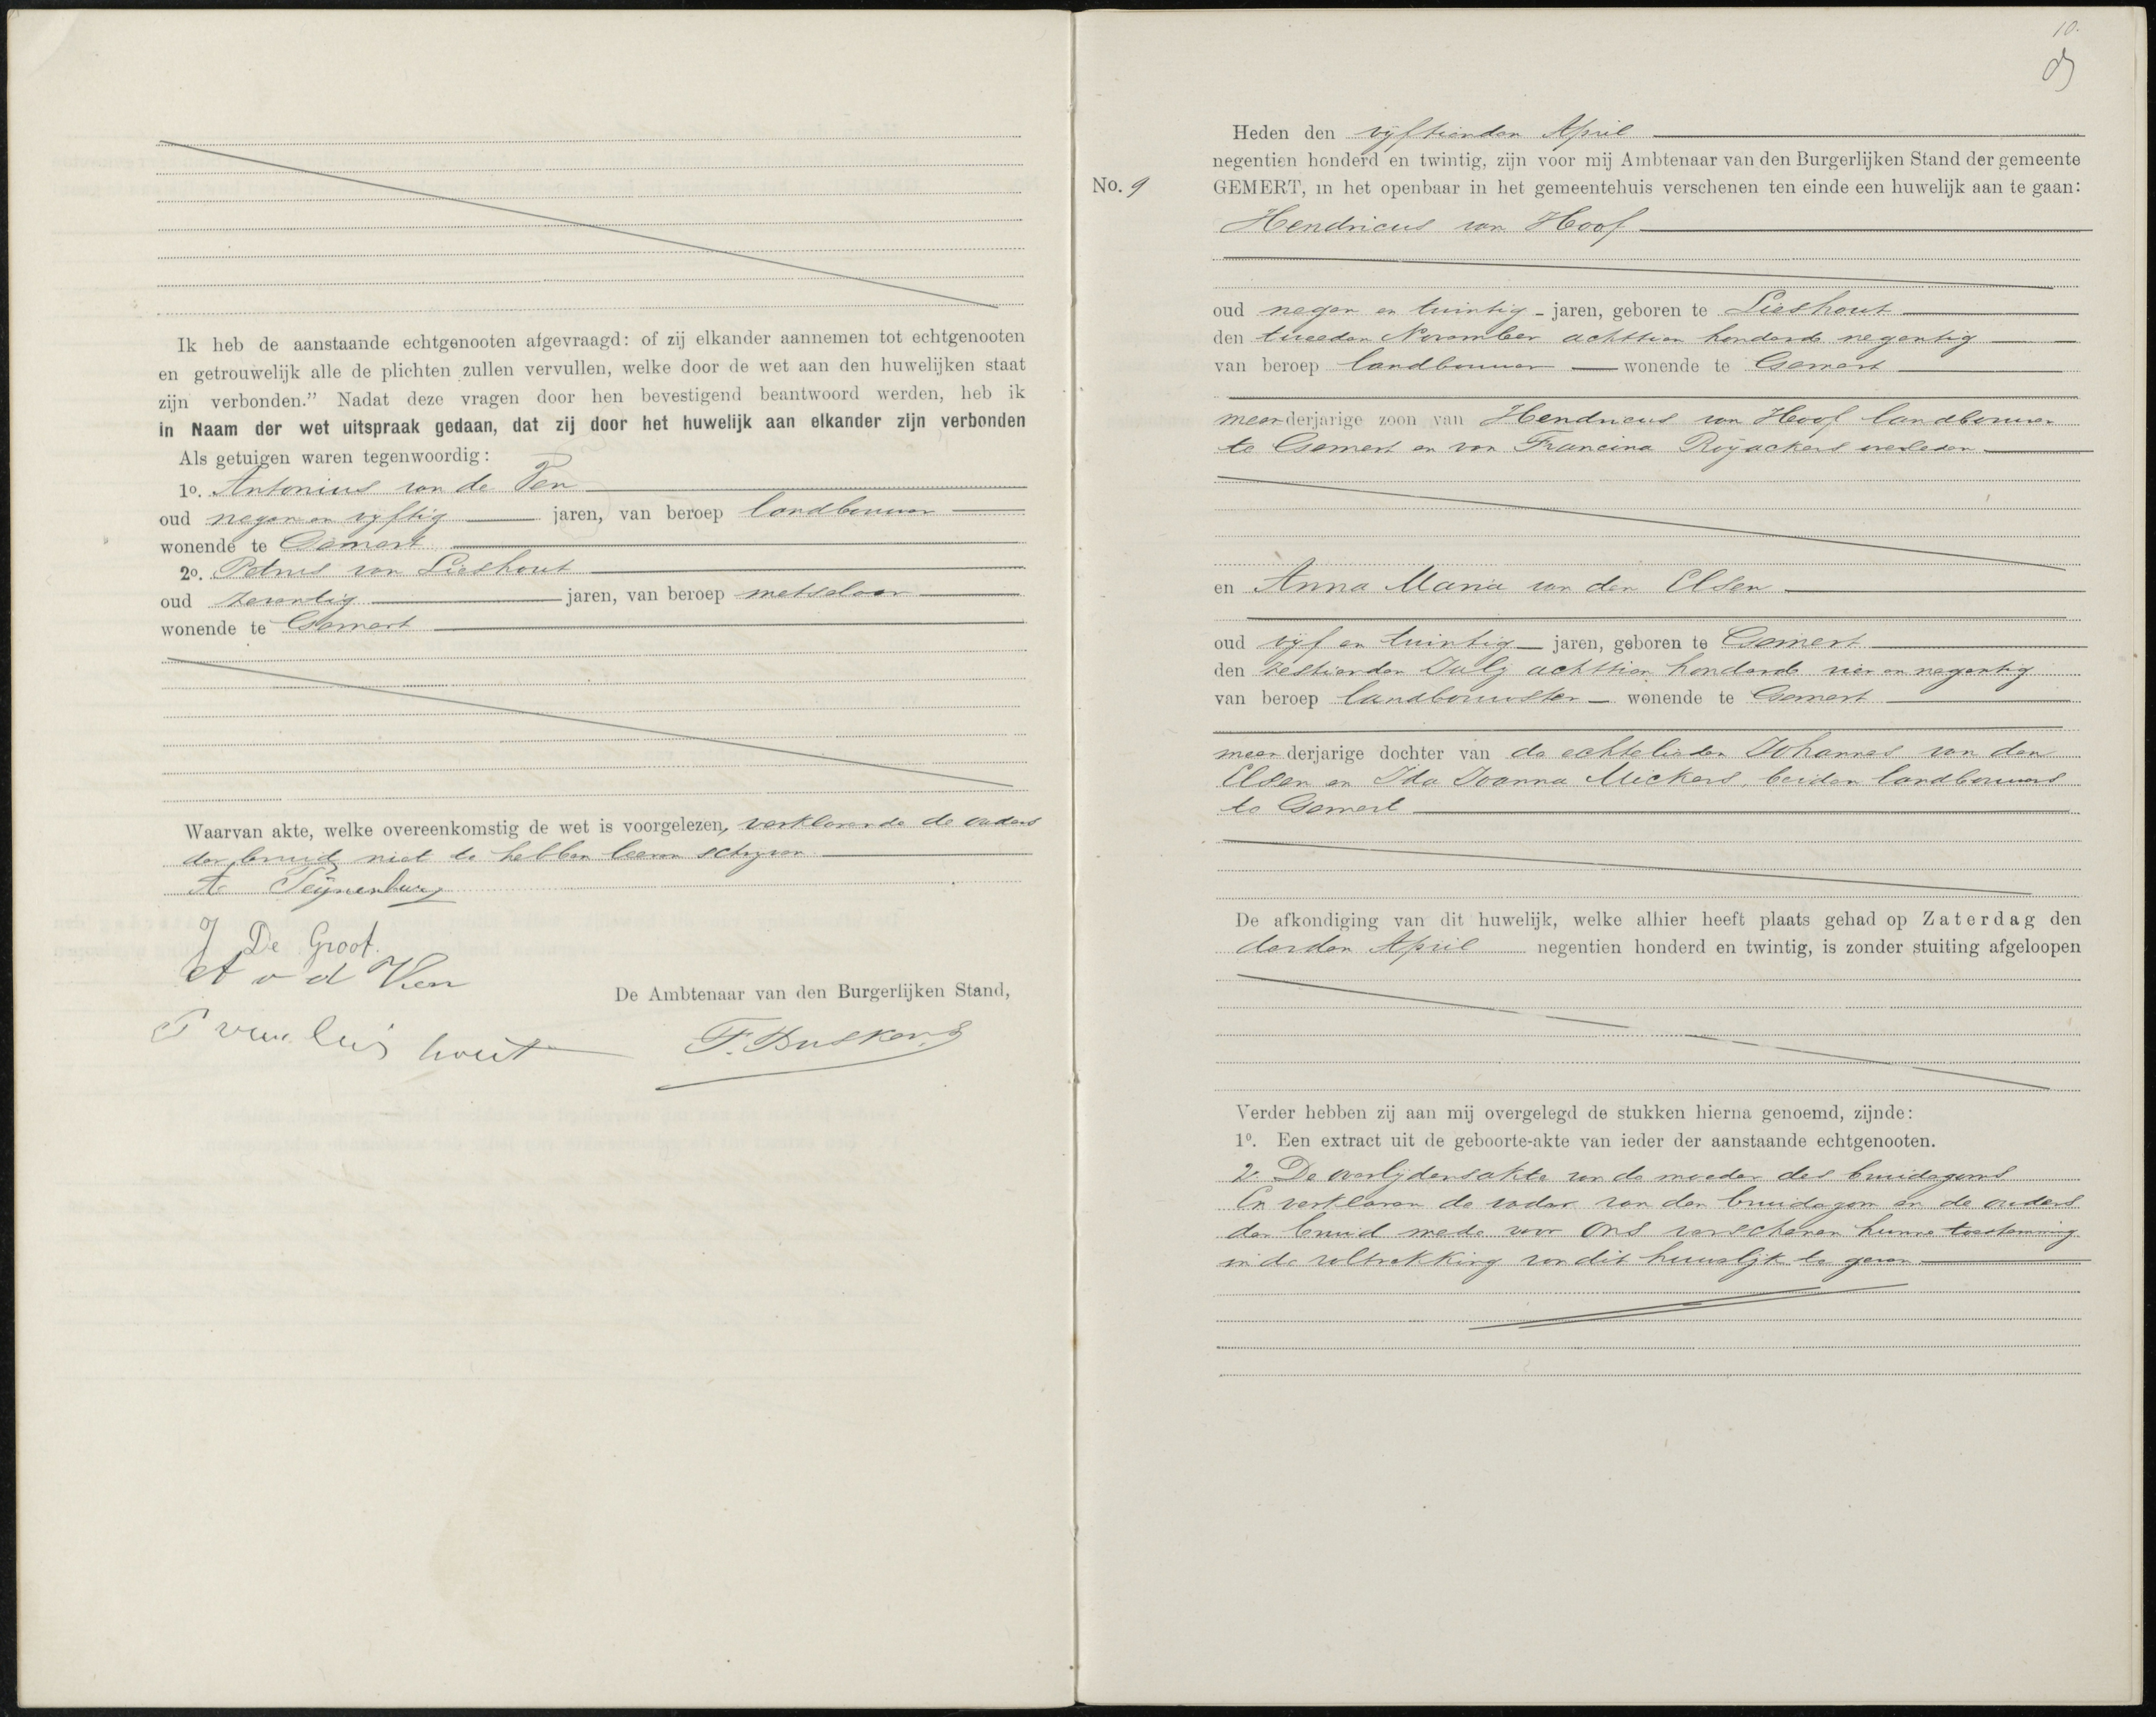 Ik heb de aanstaande echtgenooten afgevraagd: of zij elkander aannemen tot echtgenooten
en getrouwelijk alle de plichten zullen vervullen, welke door de wet aan den huwelijken staat
zijn verbonden.” Nadat deze vragen door hen bevestigend beantwoord werden, heb ik
in Naam der wet uitspraak gedaan, dat zij door het huwelijk aan elkander zijn verbonden
Als getuigen waren tegenwoordig:
1o. Antonius van de Ven
oud negen en vijftig jaren, van beroep landbouwer
wonende te Gemert
2o. Petrus van Lieshout
oud zeventig jaren, van beroep metselaar
wonende te Gemert
Waarvan akte, welke overeenkomstig de wet is voorgelezen, verklarende de ouders
der bruid niet te hebben leeren schrijven
A Peijnenburg
J De Groot.
A v d Ven
De Ambtenaar van den Burgerlijken Stand,
P van Lieshout
F. Buskens
10.
No. 9
Heden den vijftienden April
negentien honderd en twintig, zijn voor mij Ambtenaar van den Burgerlijken Stand der gemeente
GEMERT, in het openbaar in het gemeentehuis verschenen ten einde een huwelijk aan te gaan:
Hendricus van Hoof
oud negen en twintig jaren, geboren te Lieshout
den tweeden November achttien honderd negentig
van beroep landbouwer wonende te Gemert
meerderjarige zoon van Hendricus van Hoof landbouwer
te Gemert en van Francina Roijackers overleden
en Anna Maria van den Elsen
oud vijf en twintig jaren, geboren te Gemert
den zestienden July achttien honderd vier en negentig
van beroep landbouwster wonende te Gemert
meerderjarige dochter van de echtelieden Johannes van den
Elsen en Ida Joanna Mickers, beiden landbouwers
te Gemert
De afkondiging van dit huwelijk, welke alhier heeft plaats gehad op Zaterdag den
derden April negentien honderd en twintig, is zonder stuiting afgeloopen
Verder hebben zij aan mij overgelegd de stukken hierna genoemd, zijnde:
1o. Een extract uit de geboorte-akte van ieder der aanstaande echtgenooten.
2. De overlijdensakte van de moeder des bruidegoms
En verklaren de vader van den bruidegom en de ouders
der bruid mede voor ons verschenen hunne toestemming
in de voltrekking van dit huwelijk te geven